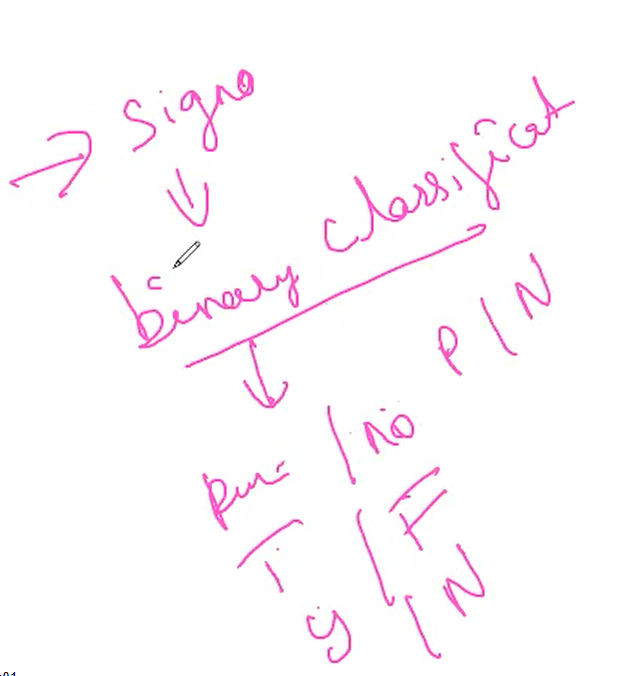 Signo
binary classificat
P/N
/no
T/F
y/N